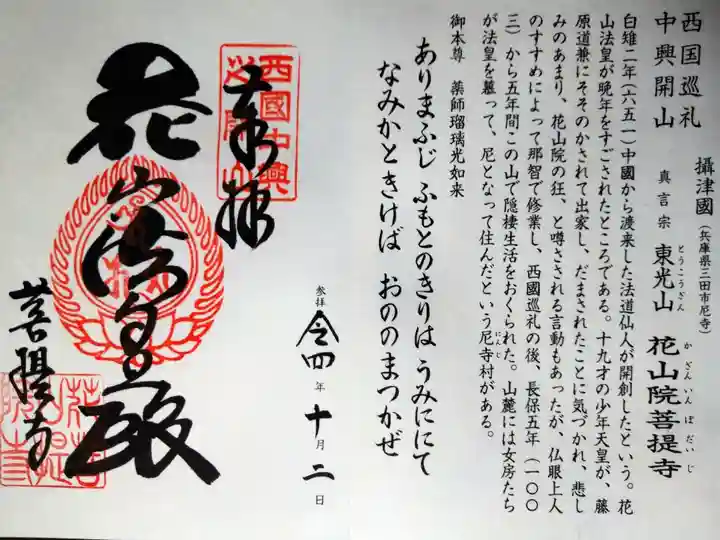 西国巡礼
中興開山
攝津國（兵庫県三田市尼寺）
真言宗 東光山 花山院菩提寺
とうこうざん かざんいんぼだいじ
白雉二年（六五一）中國から渡来した法道仙人が開創したという。花
山法皇が晩年をすごされたところである。十九才の少年天皇が、藤
原道兼にそそのかされて出家し、だまされたことに気づかれ、悲し
みのあまり、花山院の狂、と噂される言動もあったが、仏眼上人
のすすめによって那智で修業し、西國巡礼の後、長保五年（一〇〇
三）から五年間この山で隠棲生活をおくられた。山麓には女房たち
が法皇を慕って、尼となって住んだという尼寺村がある。
にんじ
御本尊 薬師瑠璃光如来
ありまふじ ふもとのきりは うみににて
なみかときけば おののまつかぜ
参拝 令四年十月二日
西國中興
奉拝
花山法皇殿
菩提寺